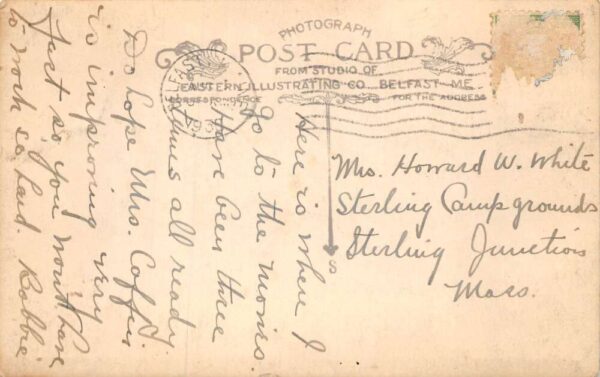 PHOTOGRAPH
POST CARD
FROM STUDIO OF
EASTERN ILLUSTRATING CO. BELFAST ME.
CORRESPONDENCE
FOR THE ADDRESS
Here is where I
go to the movies.
Have been three
times all ready
Do hope Mrs. Coffin
is improving very
fast so you won't have
to work so hard. Robbie
Mrs. Howard W. White
Sterling Camp grounds
Sterling Junction
Mass.